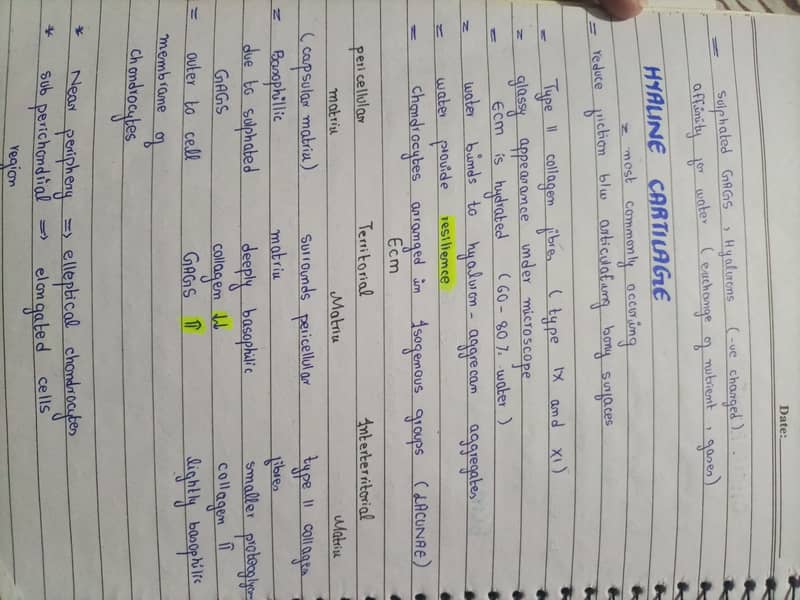 Date:
= sulphated GAGs, Hyalurons (-ve charged).
affinity for water (exchange of nutrient, gases)
HYALINE CARTILAGE
= most commonly accuring
= reduce friction b/w articulating bony surfaces
= Type II collagen fibres (type IX and XI)
= glassy appearance under microscope
= ECM is hydrated (60-80% water)
= water binds to hyaluron-aggrecan aggregates
= water provide resilience
= chondrocytes arranged in Isogenous groups (LACUNAE)
ECM
pericellular Territorial Interterritorial
matrix Matrix Matrix
(capsular matrix) surrounds pericellular type II collagen
= Basophillic matrix fibres
due to sulphated deeply basophilic smaller proteoglycan
GAGs collagen ⇊ collagen ⇈
= outer to cell GAGs ⇈ lightly basophilic
membrane of
chondrocytes
* Near periphery => elleptical chondrocytes
* sub perichondrial => elongated cells
region